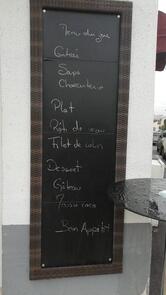 Menu du jour
Entrée
Soupe
Charcuterie
Plat
Rôti de veau
Filet de colin
Dessert
Gâteau
Bon Appétit